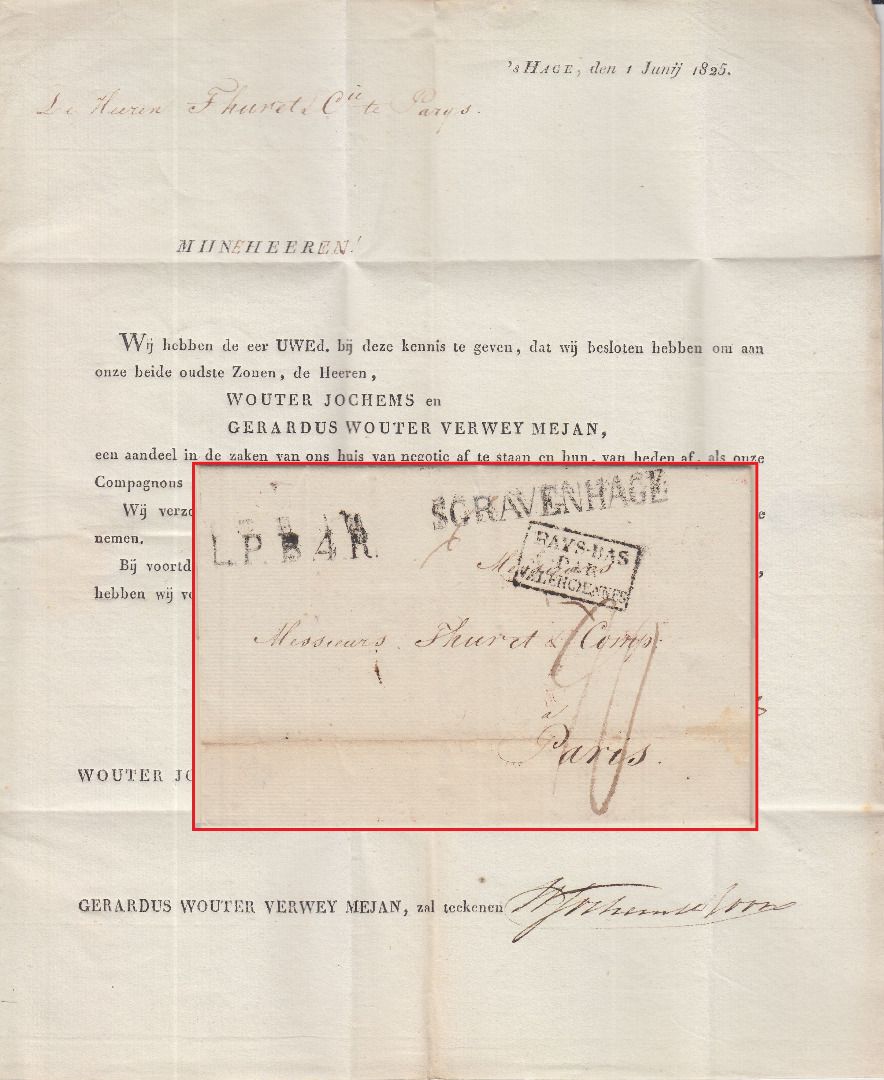 'sHAGE, den 1 Junij 1825.
De Heeren Thuret & Cie te Parys.
MIJNEHEEREN!
Wij hebben de eer UWEd. bij deze kennis te geven, dat wij besloten hebben om aan
onze beide oudste Zonen, de Heeren,
WOUTER JOCHEMS en
GERARDUS WOUTER VERWEY MEJAN,
een aandeel in de zaken van ons huis van negotie af te staan en hun, van heden af, als onze
Compagnons
Wij
nemen.
Bij
hebben wij
WOUTER
GERARDUS WOUTER VERWEY MEJAN, zal teekenen
SGRAVENHAGE
L.P.B.4.R.
PAYS-BAS
PAR
VALENCIENNES
Messieurs
Messieurs Thuret & Comp.
a
Paris.